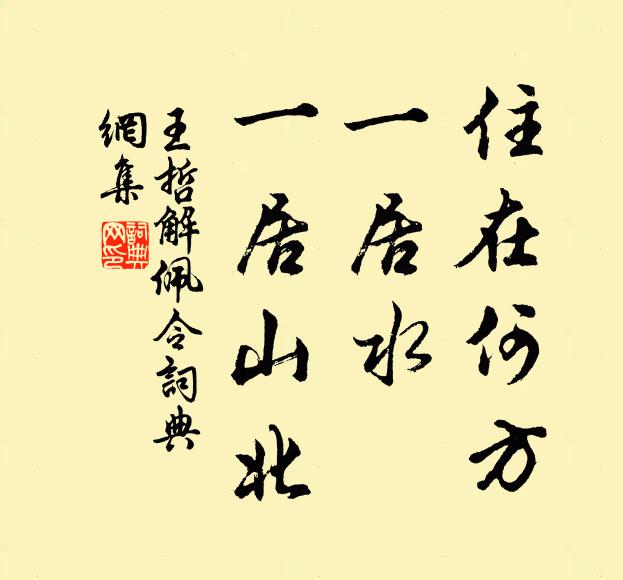 住在何方
一居水
一居山北
王哲解佩令詞典
網集
詞典
网印